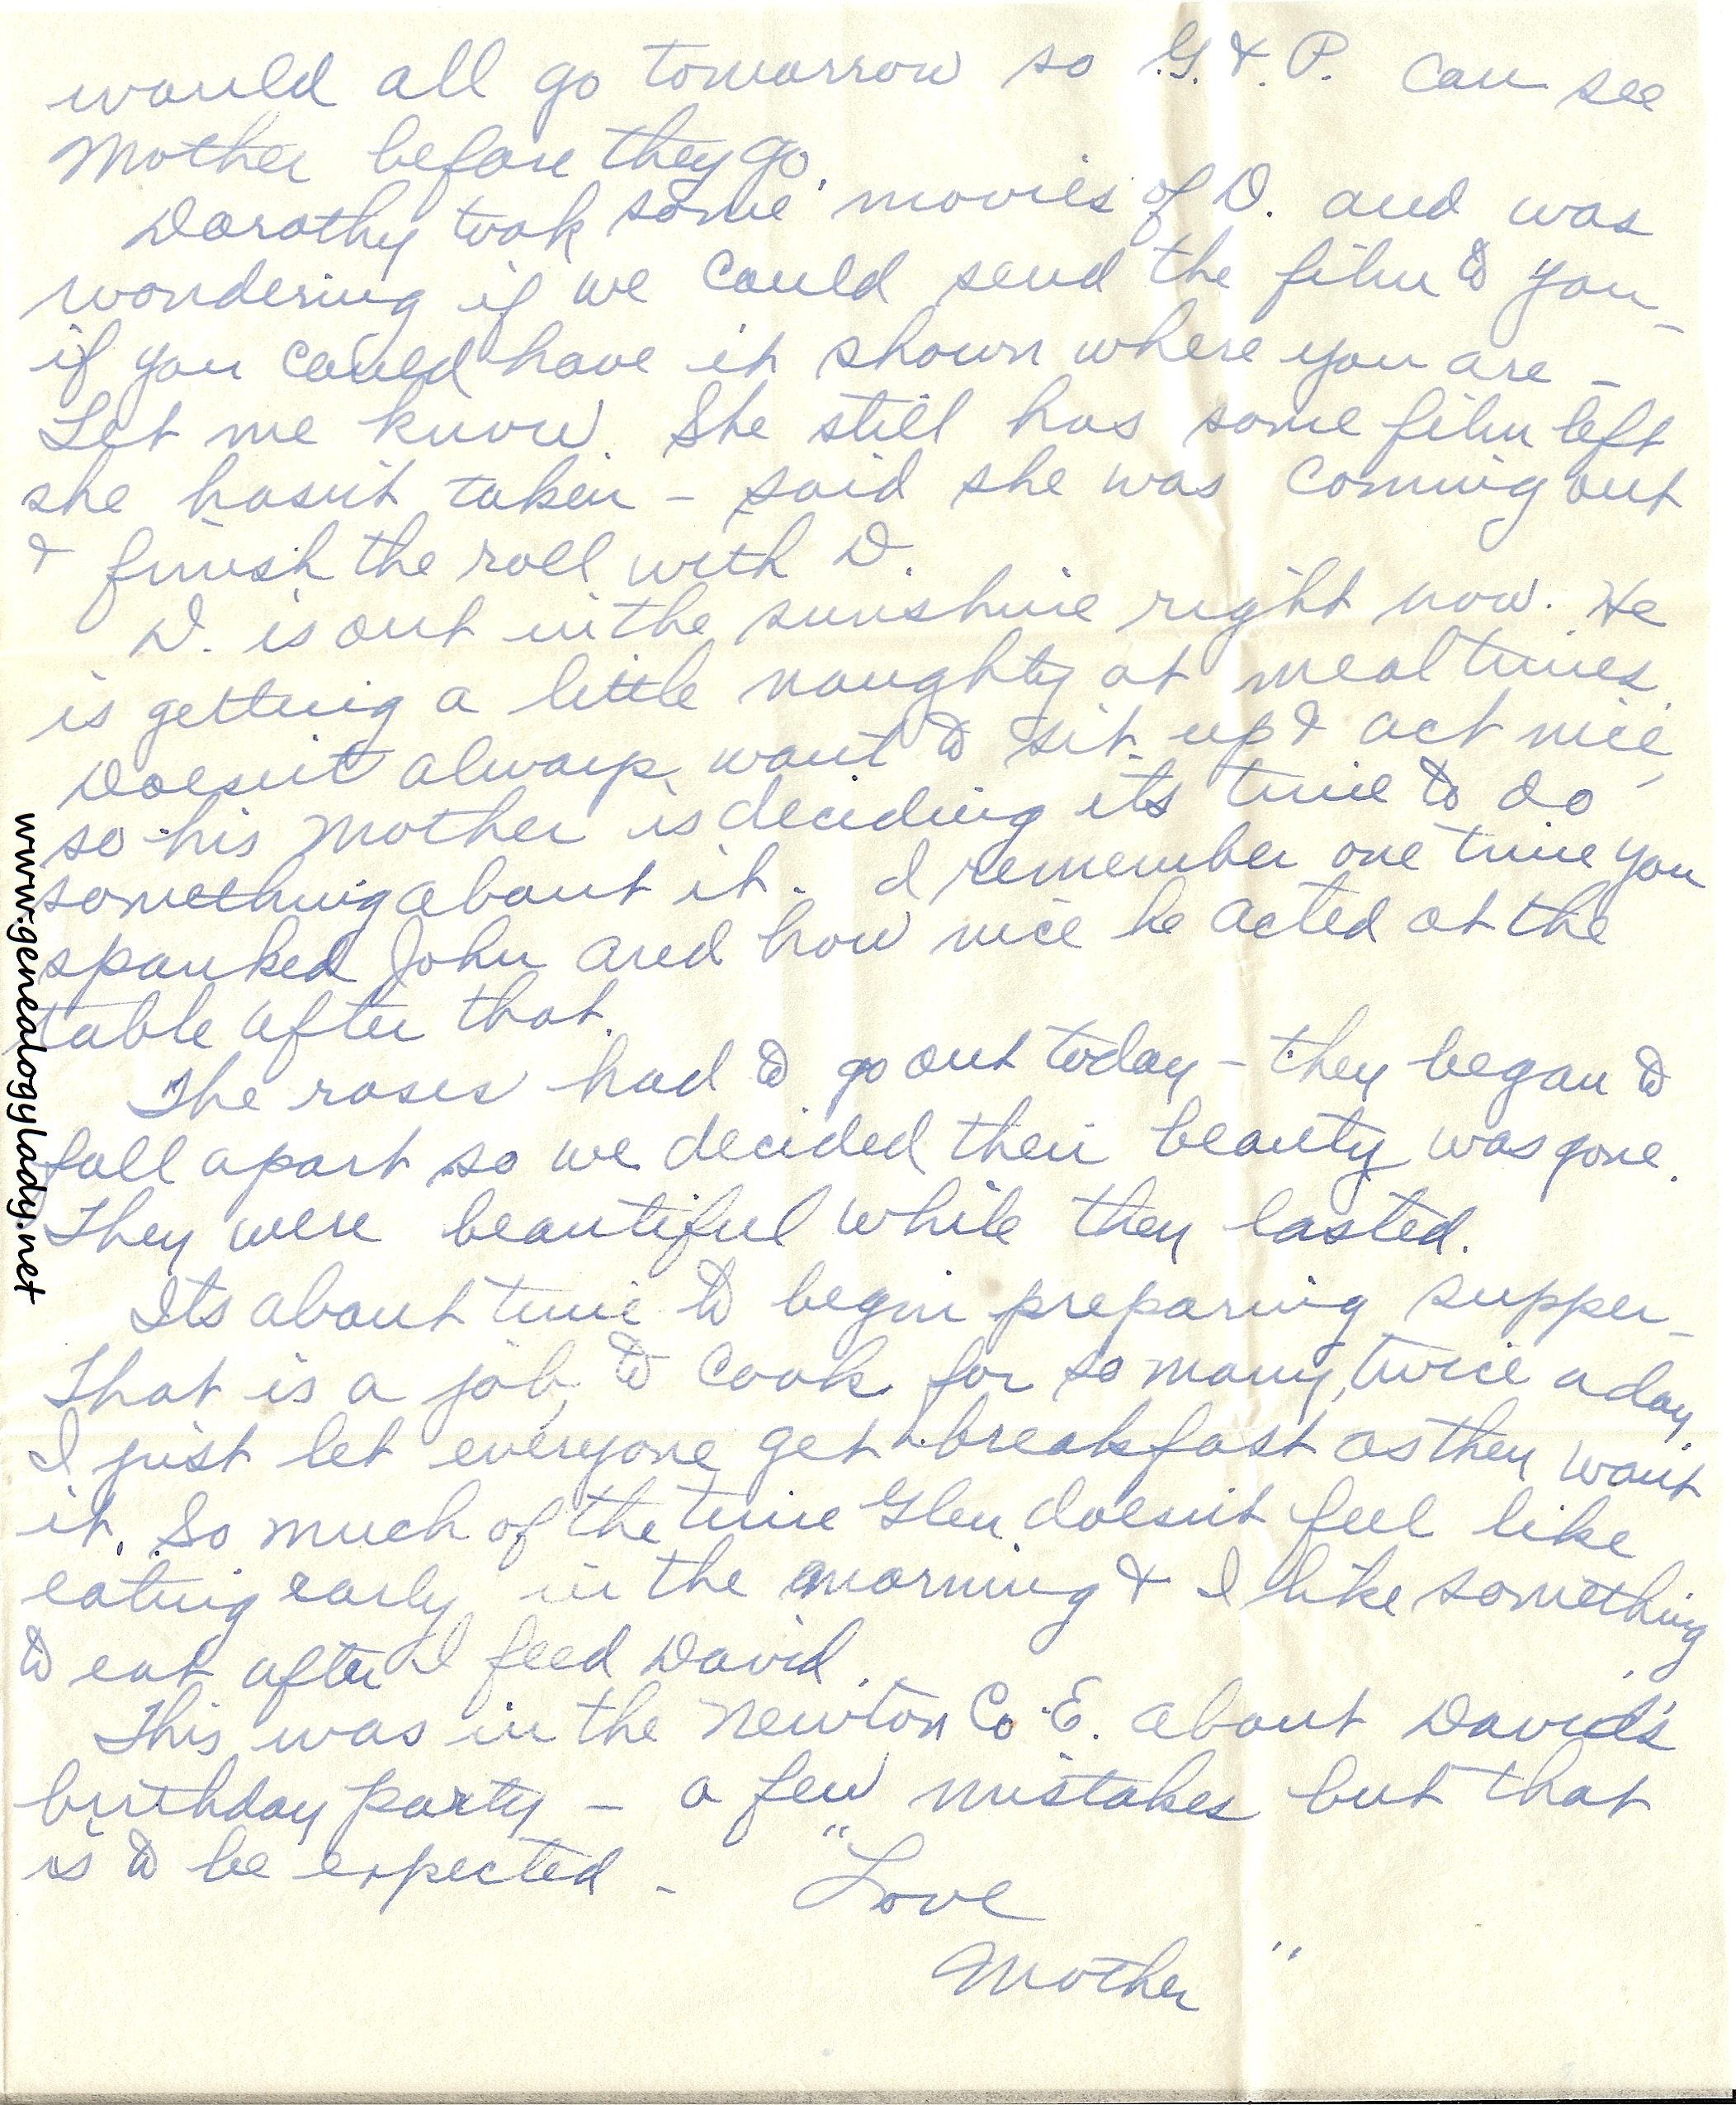 would all go tomorrow so G. & P. can see
Mother before they go.
Dorothy took some movies of D. and was
wondering if we could send the film to you -
if you could have it shown where you are -
Let me know. She still has some film left
she hasn't taken - said she was coming out
& finish the roll with D.
D. is out in the sunshine right now. He
is getting a little naughty at meal times.
Doesn't always want to sit up & act nice,
so his Mother is deciding its time to do
something about it. I remember one time you
spanked John and how nice he acted at the
table after that.
The roses had to go out today - they began to
fall apart so we decided their beauty was gone.
They were beautiful while they lasted.
Its about time to begin preparing supper -
That is a job, to cook for so many, twice a day.
I just let everyone get breakfast as they want
it. So much of the time Glen doesn't feel like
eating early in the morning & I like something
to eat after I feed David.
This was in the Newton Co. E. about David's
birthday party - a few mistakes but that
is to be expected -
"Love
Mother"
www.genealogylady.net